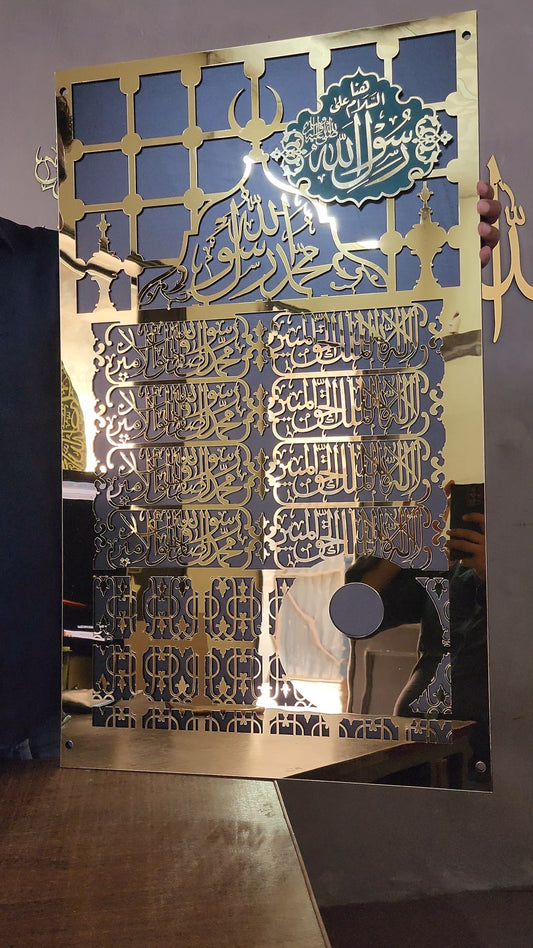 هنا
السّلام على
رسول الله
محمد رسول الله
لا إله إلا الله الملك الحق المبين محمد رسول الله الصادق الوعد الأمين
لا إله إلا الله الملك الحق المبين محمد رسول الله الصادق الوعد الأمين
لا إله إلا الله الملك الحق المبين محمد رسول الله الصادق الوعد الأمين
لا إله إلا الله الملك الحق المبين محمد رسول الله الصادق الوعد الأمين